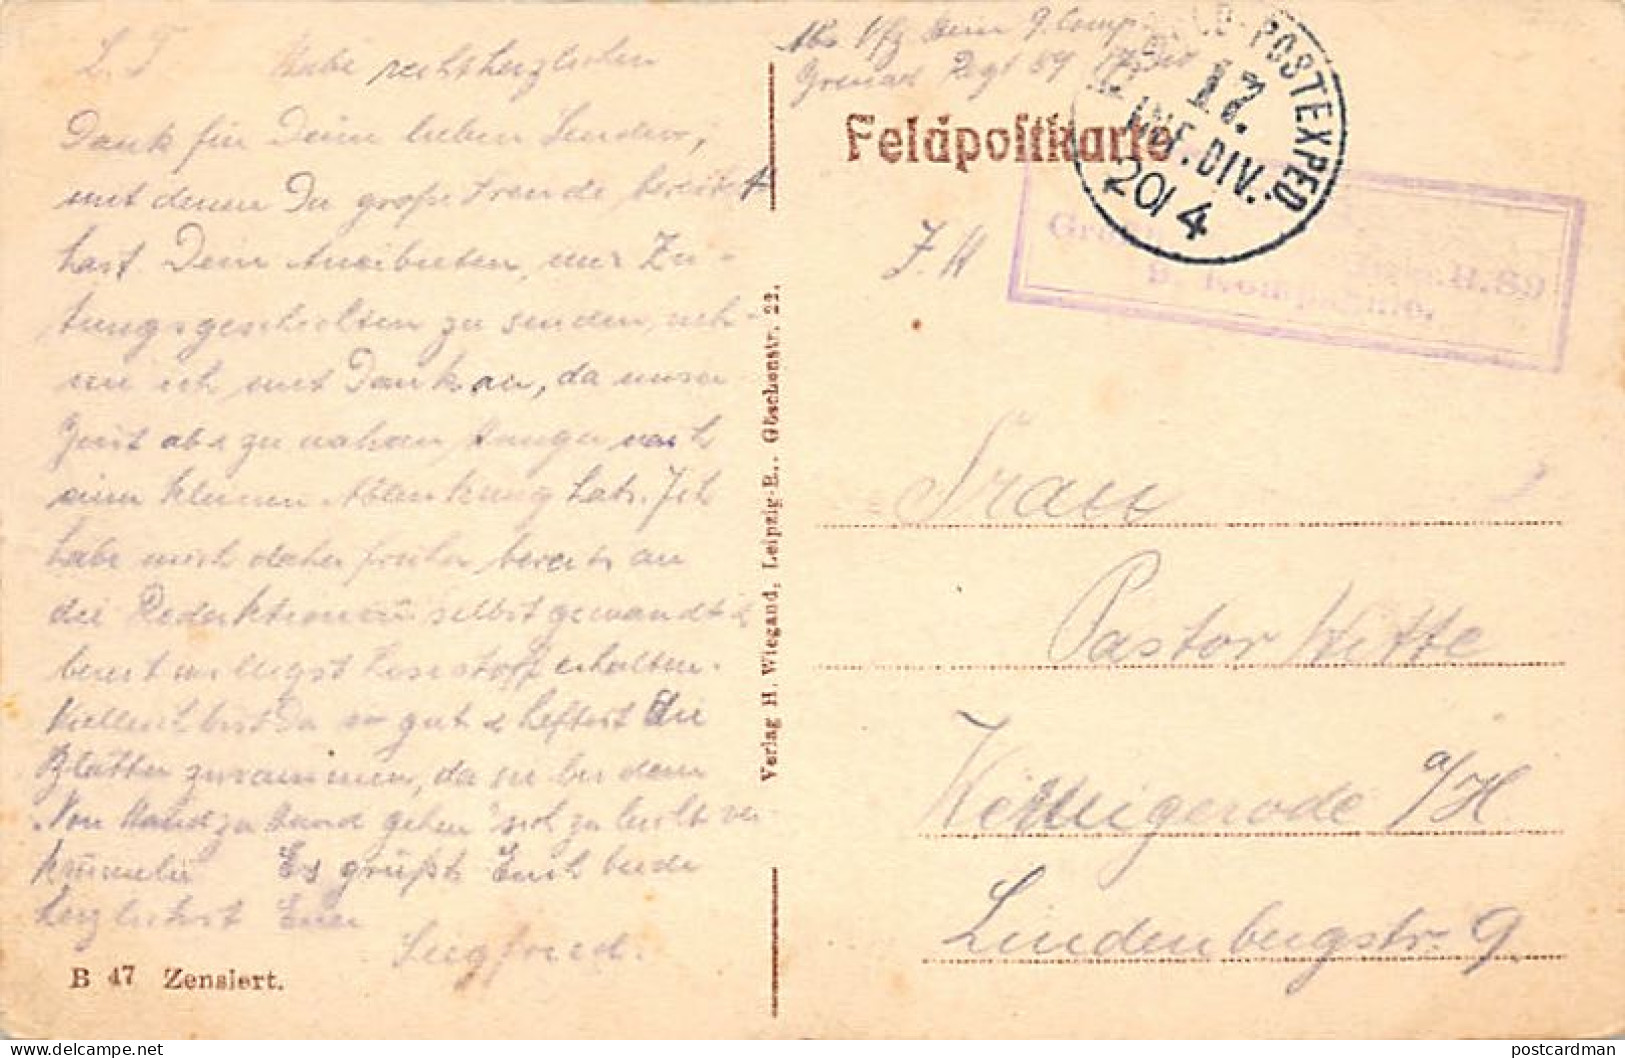 L. T. Habe recht herzlichen
Dank für Deine lieben Sendun,
mit denen Du große Freude bereitet
hast. Dein Anerbieten, mir Zei-
tungsgeschichten zu senden, neh-
me ich mit Dank an, da unser
Geist ab & zu nahen Hunger nach
einer kleinen Ablenkung hat. Ich
habe mich daher früher bereits an
die Redaktionen selbst gewandt &
bereits Lesestoff erhalten.
Vielleicht bist Du so gut & heftest die
Blätter zusammen, da sie bei dem
Von Hand zu Hand gehen sich zu leicht ver-
krümeln Es grüßt Euch beide
herzlichst Euer
Siegfried.
B 47 Zensiert.
Verlag H. Wiegand, Leipzig-R., Göschenstr. 22.
Abs Vfz 9. Comp
Grenad Regt 89 17. Div
Feldpostkarte
FELD-POSTEXPED.
17.
INF. DIV.
20 4
H. 89
9. Kompagnie.
F. H
Frau
Pastor Witte
Wernigerode a/H
Lindenbergstr. 9
delcampe.net
postcardman